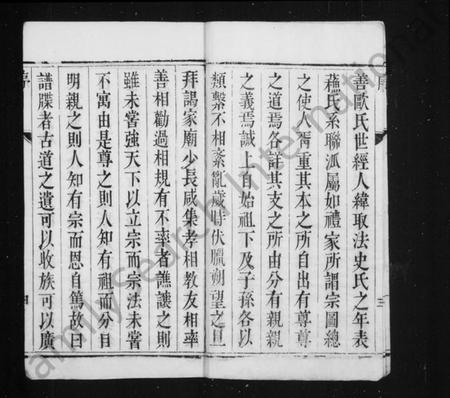 善歐氏世經人緯取法史氏之年表
蘇氏系聯派屬如禮家所謂宗圖總
之使人胥重其本之所自出有尊尊
之道焉各詳其支之所由分有親親
之義焉誠上自始祖下及子孫各以
類繫不相紊亂歲時伏臘朔望之旦
拜謁家廟少長咸集孝相教友相率
善相勸過相規有不率者譙讓之則
雖未嘗強天下以立宗而宗法未嘗
不寓由是尊之則人知有祖而分自
明親之則人知有宗而恩自篤故曰
譜牒者古道之遺可以收族可以廣
序
三
四
FamilySearch International